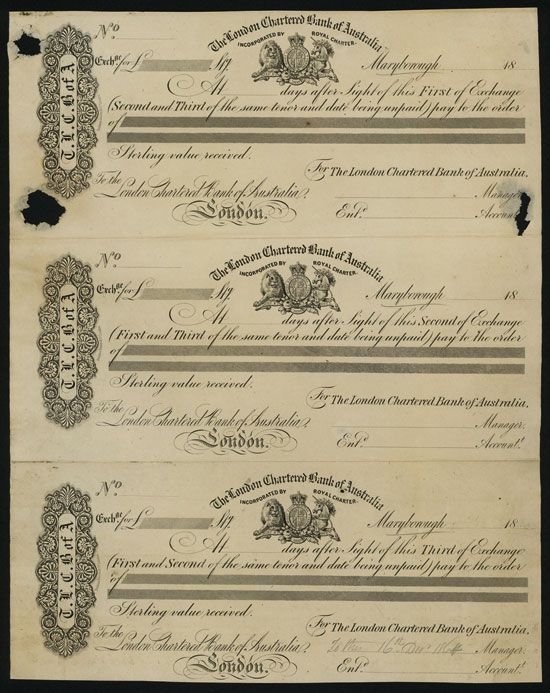 T.L.C.B of A
No
The London Chartered Bank of Australia
INCORPORATED BY ROYAL CHARTER.
Exchge for £ Stg. Maryborough 18
At days after Sight of this First of Exchange
(Second and Third of the same tenor and date being unpaid) pay to the order
of
Sterling value received.
For The London Chartered Bank of Australia.
To the
London Chartered Bank of Australia,
Manager.
London.
Entd. Accountt.
T.L.C.B of A
No
The London Chartered Bank of Australia
INCORPORATED BY ROYAL CHARTER.
Exchge for £ Stg. Maryborough 18
At days after Sight of this Second of Exchange
(First and Third of the same tenor and date being unpaid) pay to the order
of
Sterling value received.
For The London Chartered Bank of Australia.
To the
London Chartered Bank of Australia,
Manager.
London.
Entd. Accountt.
T.L.C.B of A
No
The London Chartered Bank of Australia
INCORPORATED BY ROYAL CHARTER.
Exchge for £ Stg. Maryborough 18
At days after Sight of this Third of Exchange
(First and Second of the same tenor and date being unpaid) pay to the order
of
Sterling value received.
For The London Chartered Bank of Australia.
To the
London Chartered Bank of Australia,
16th Manager.
London.
Entd. Accountt.